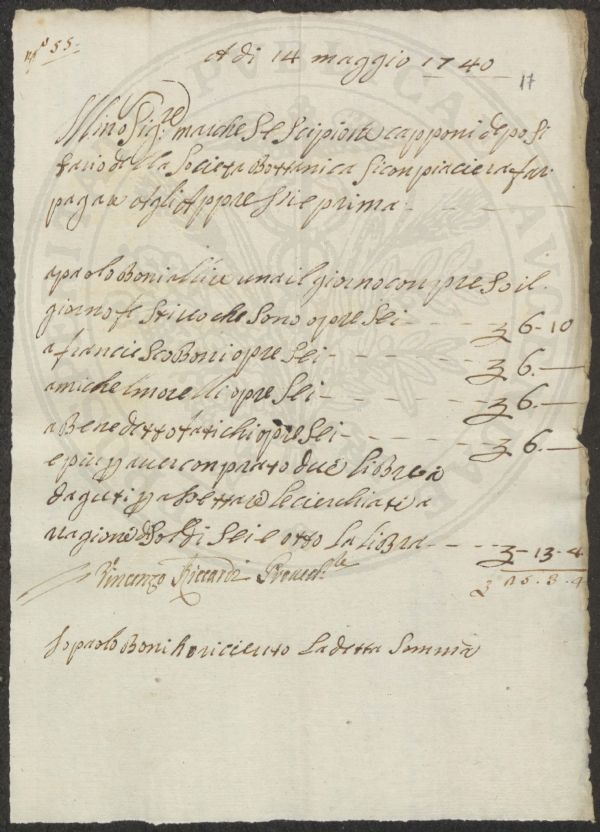 N.º 55.
A di 14 maggio 1740
17
Ill.mo Sig.re marchese Scipione capponi deposi
tario della Societa Bottanica Si conpiaciera far
pagare agli Appresso e prima
a paolo Boni a lire una il giorno conpreso il
giorno festivo che Sono opre Sei - - - - ʒ 6-10
a francie Sco Boni opre Sei - - - ʒ 6. —
a michel morelli opre Sei - - - - ʒ 6. —
a Benedetto fatichi opre Sei - - - - ʒ 6. —
e piu p aver conprato due liBre
daguti p aSettare le cierchiate a
ragione Soldi Sei e otto la liBra - - - - ʒ - 13 - 4
Vincenzo Riccardi Proved.re
ʒ 25. 3. 4
Io paolo Boni ho riceuto la detta Somma